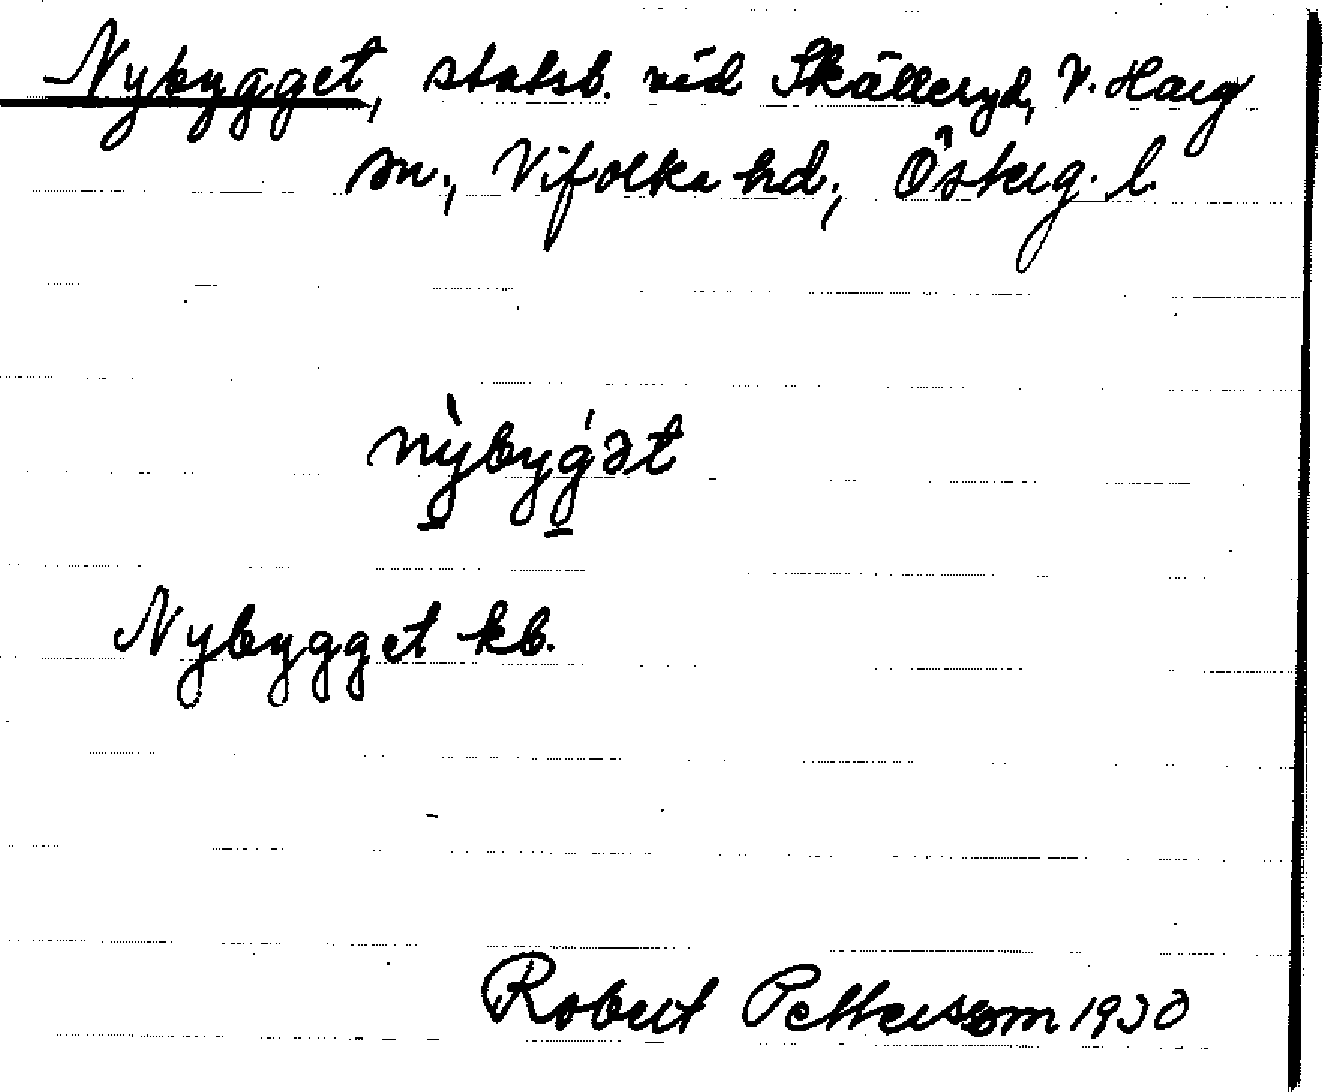 Nybygget, statsb. vid Skälleryd, V. Harg
sn., Vifolka hd., Österg. l.
nỳbyǵət
Nybygget kb.
Robert Pettersson 1930